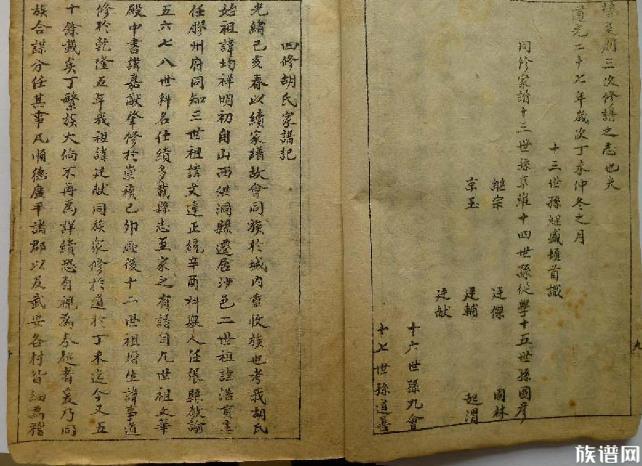 次修譜之志也夫
道光二十七年歲次丁未仲冬之月
十三世孫
盛堪首識
同修家譜十三世孫
維十四世孫從學十五世孫國彥
繼宗
廷傑
國林
京玉
廷輔
起渭
廷獻
十六世孫九會
十七世孫道
四修胡氏家譜記
光緒己亥春以續家譜故會同族於城內
收族也考我胡氏
始祖諱均祥明初自山西洪洞縣遷居沙邑二世祖諱浩
任膠州府同知三世祖諱文達正統辛酉科舉人任
縣教諭
五六七八世科名仕績多載縣志至家之有譜自九世祖文華
殿中書諱嘉猷肇修於崇禎己卯厥後十二世祖增生諱
道
修於乾隆五年我祖諱廷獻同族
修於道光丁未迄今又五
十餘載矣丁繁族大倘不再為詳續恐有視為
越者爰乃同
族合謀分任其事凡順德廣平諸郡以及武安各村皆細為稽
族谱网